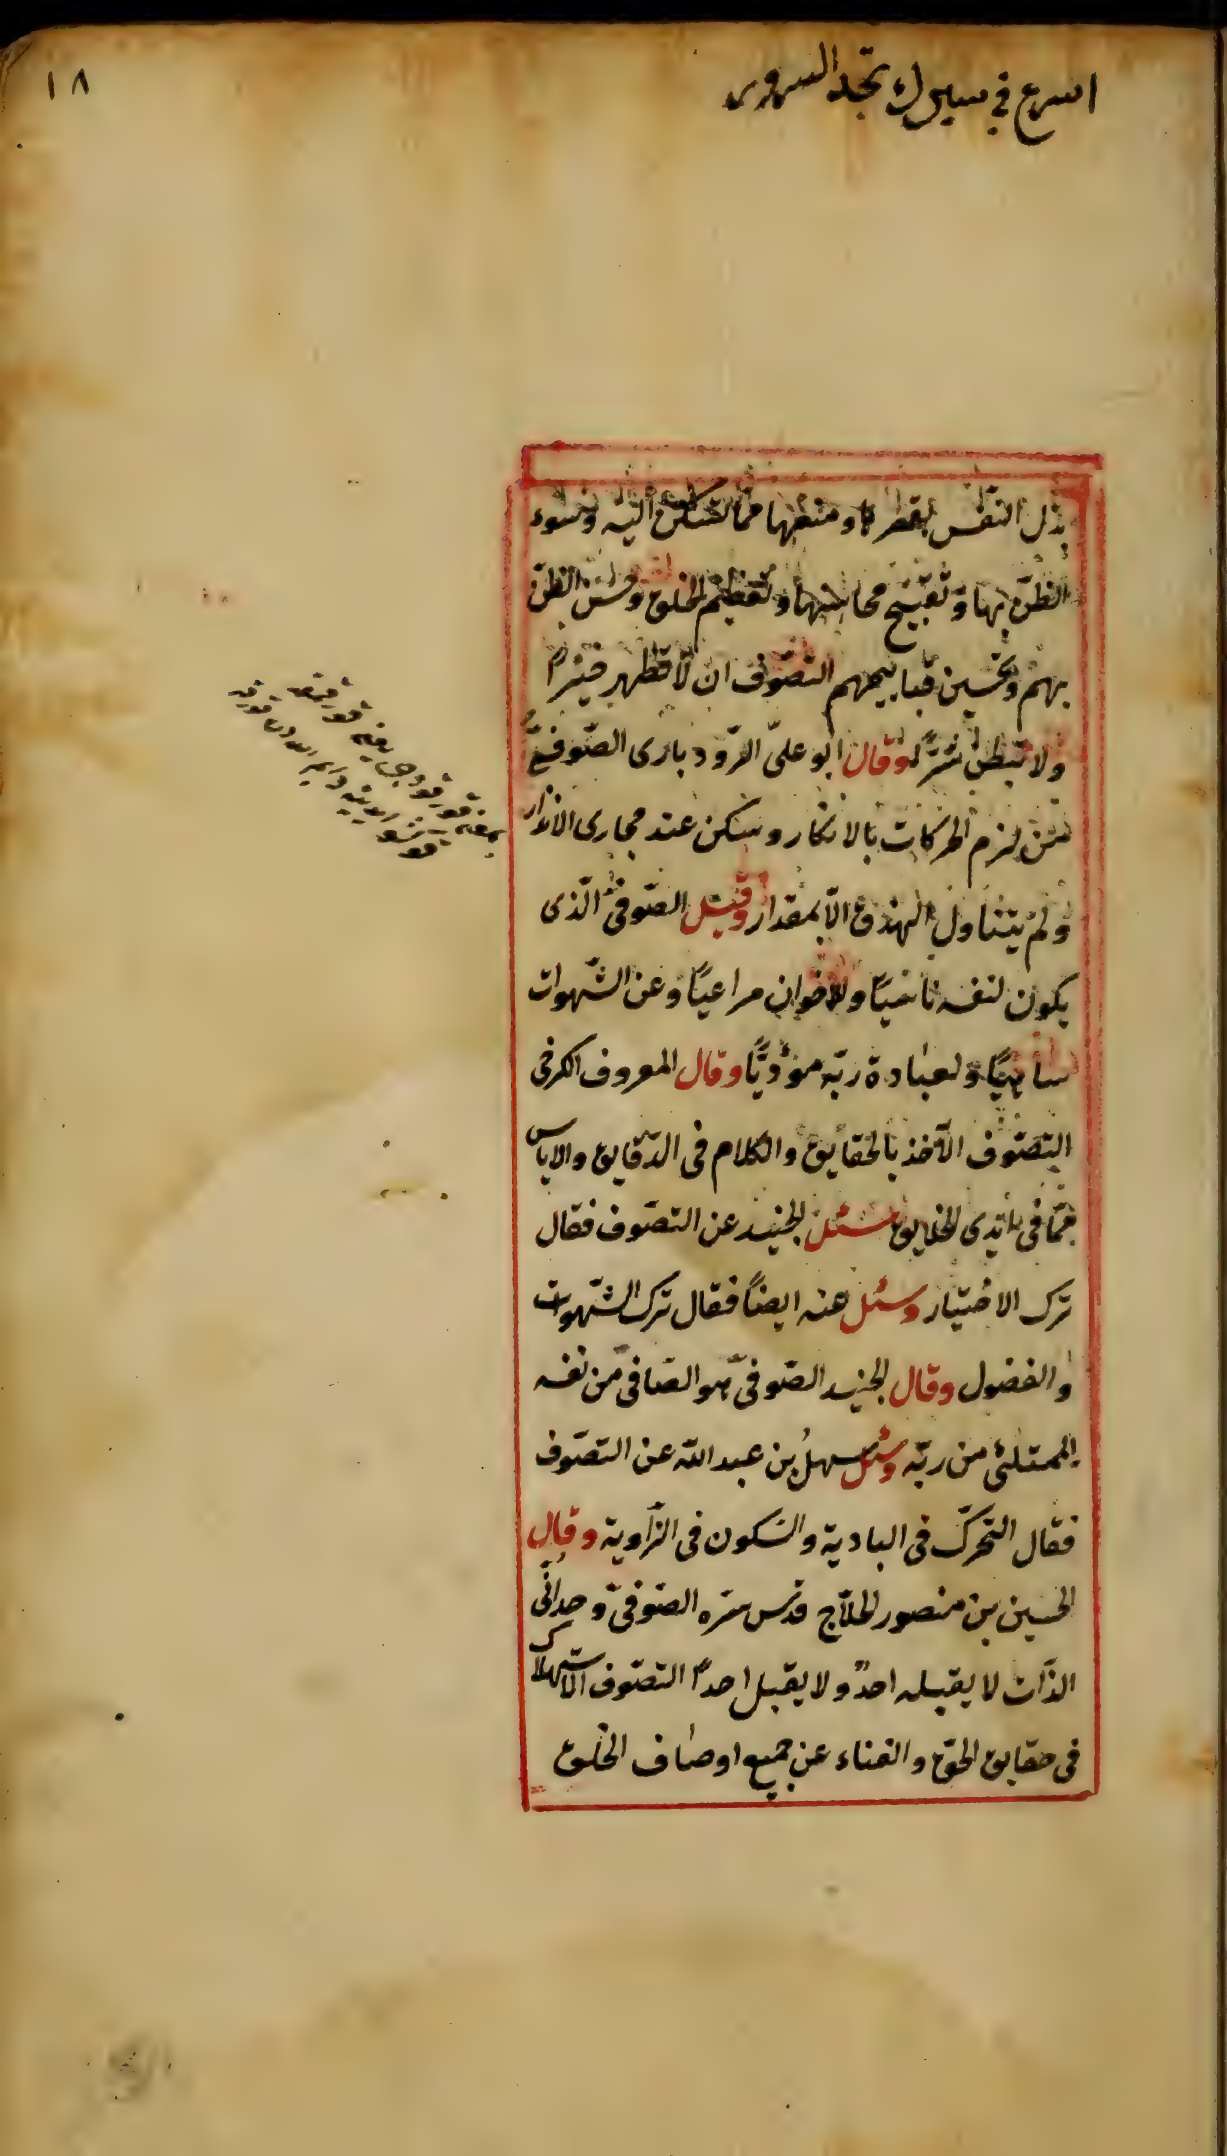 ١٨
اسرع في سيرك تجد السرور
بذل النفس
الظنّ بها وتقبيح محاسنها وتعظيم الخلق وحسن الظنّ
بهم وتحسين قبايحهم التصوّف ان لا تظهر خيرا
ولا تبطن شرّا وقال ابو علىّ الرّودبارى الصّوفىّ
من لزم الحركات بالانكار وسكن عند مجارى الاقدار
ولم يتناول الّا بمقدار وقيل الصّوفىّ الّذى
يكون لنفسه ناسيًا وللاخوان مراعيًا وعن الشّهوات
ساهيًا ولعبادة ربّه مؤدّيًا وقال المعروف الكرخى
التصّوف الأخذ بالحقايق والكلام فى الدّقايق والاياس
عمّا فى ايدى الخلايق سئل الجنيد عن التصّوف فقال
ترك الاختيار وسئل عنه ايضًا فقال ترك الشّهوات
والفضول وقال الجنيد الصّوفىّ هو الصّافى من نفسه
الممتلئ من ربّه وسئل سهل بن عبد اللّه عن التصّوف
فقال التحرّك فى البادية والسّكون فى الزّاوية وقال
الحسين بن منصور الحلّاج قدّس سرّه الصّوفىّ وحدانىّ
الذّات لا يقبله احدٌ ولا يقبل احدًا التصّوف الاستهلاك
فى حقايق الحقّ والفناء عن جميع اوصاف الخلق